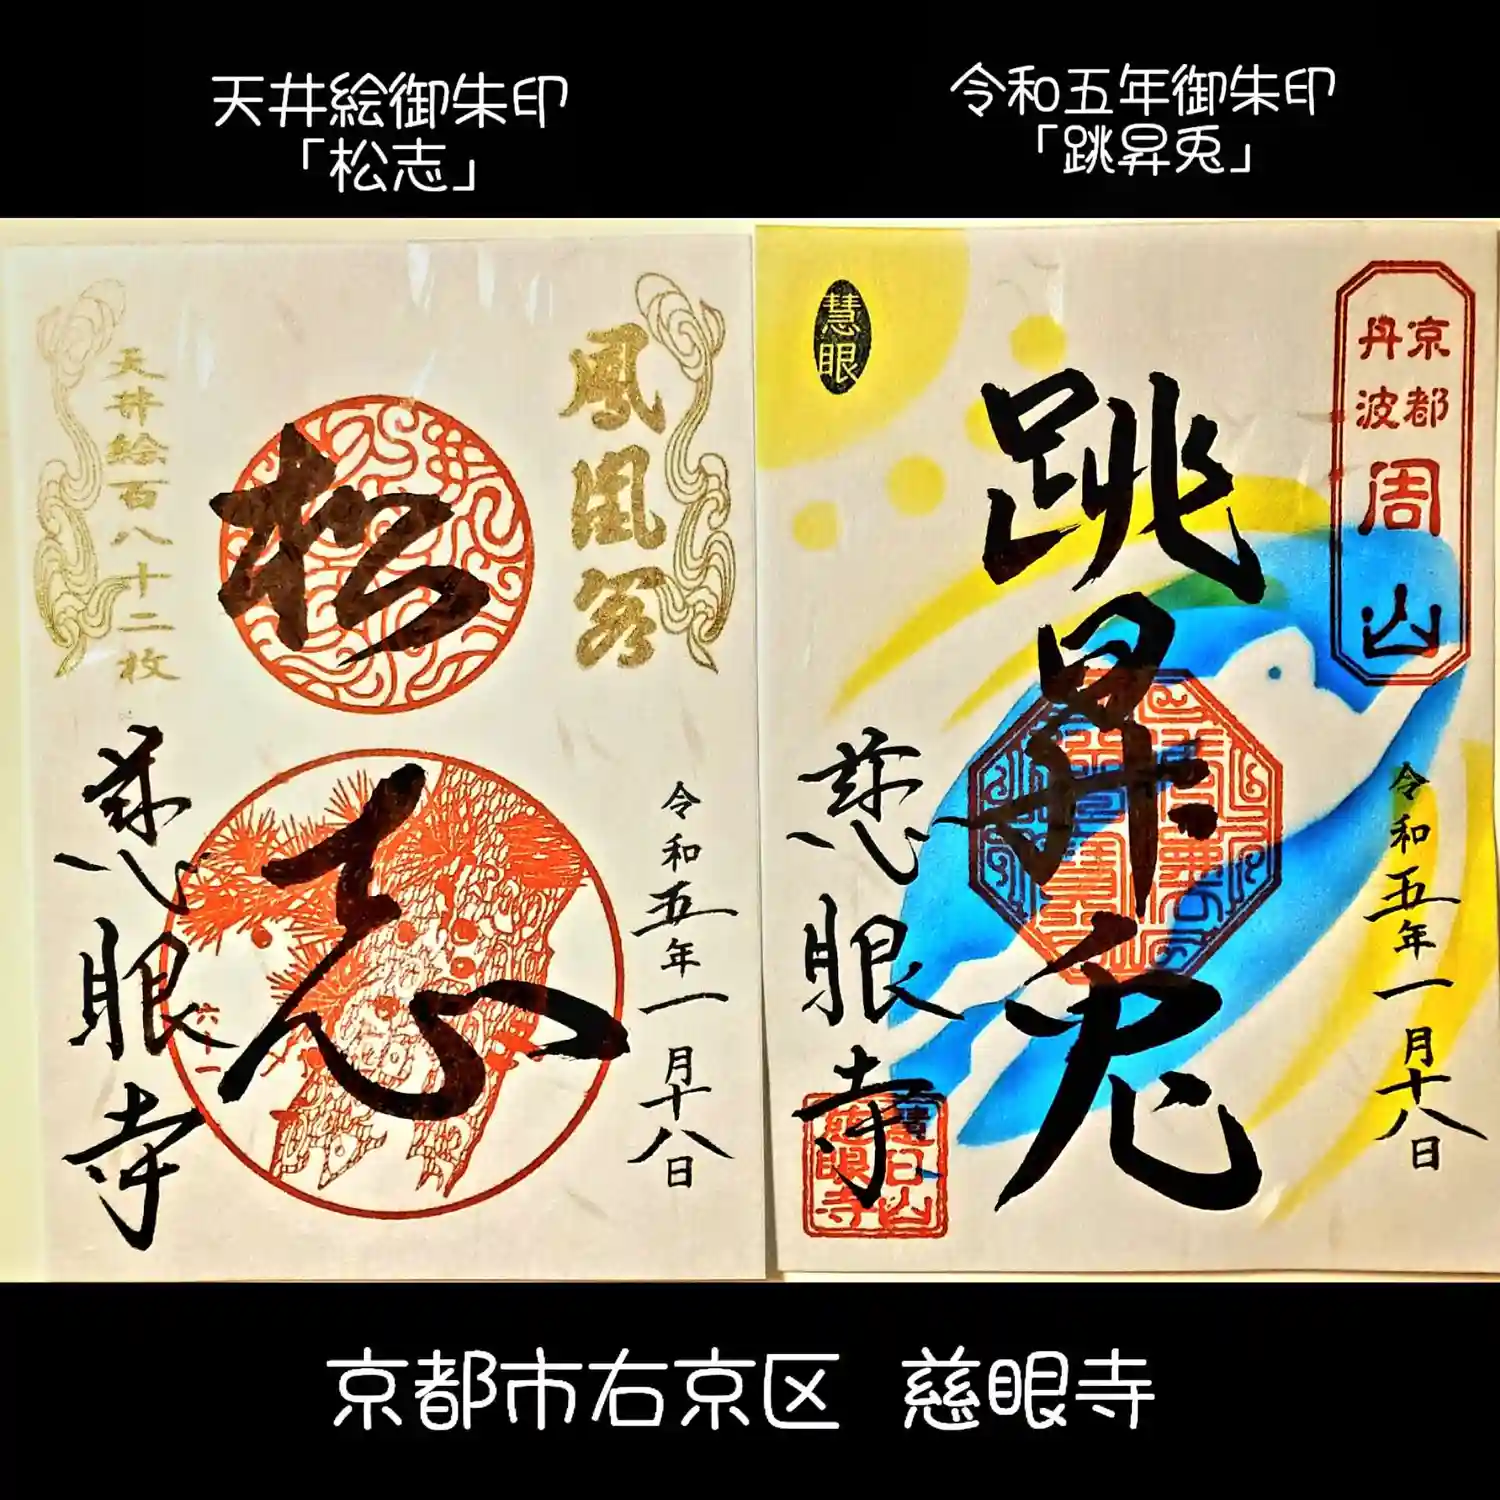 天井絵御朱印
「松志」
令和五年御朱印
「跳昇兎」
鳳凰
松志
天井絵百八十二枚
令和五年一月十八日
慈眼寺
六十一
京都
丹波
周山
慧眼
跳昇兎
令和五年一月十八日
慈眼寺
慈眼寺
京都市右京区 慈眼寺